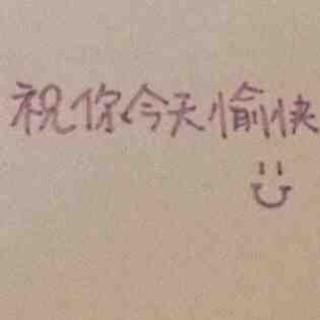 祝你今天愉快